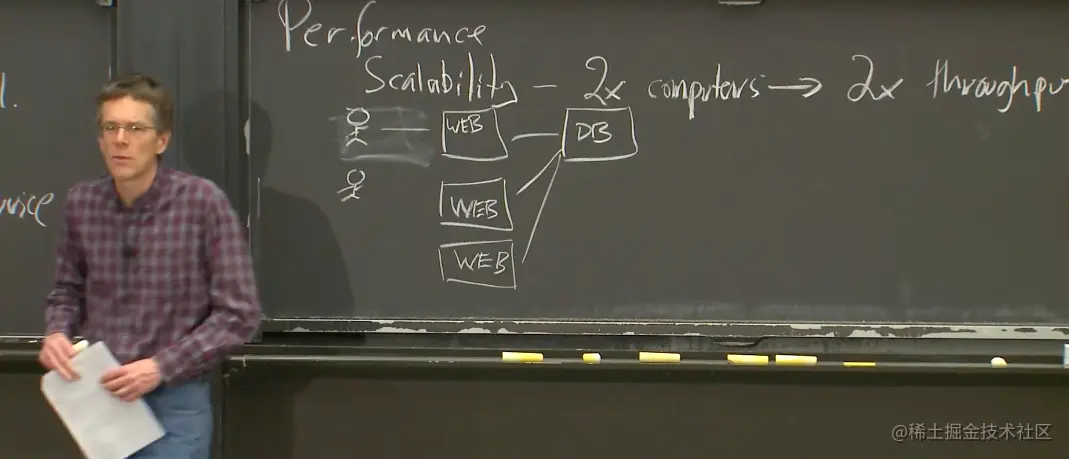 Performance
Scalability – 2x computers → 2x throughpu
WEB
DB
WEB
WEB
@稀土掘金技术社区